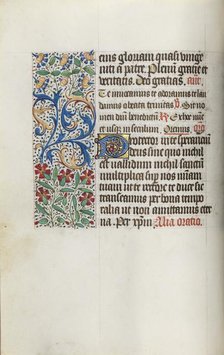 eius gloriam quasi vnige
niti a patre. Plenū gratie et
veritatis. Deo gratias. añe.
Te inuocamus te adoramus te lau
damus o beata trinitas. Sit no
men dnī benedictū
et nūc usq in seculum. Oremus.
Protector in te sperantiū
deus sine quo nichil
est validū nichil sanctū
multiplica super nos mīam
tuam ut te rectore te duce sic
transeamus per bona tempo
ralia ut non amittamus eter
na. Per xpm̄. Alia oratio.